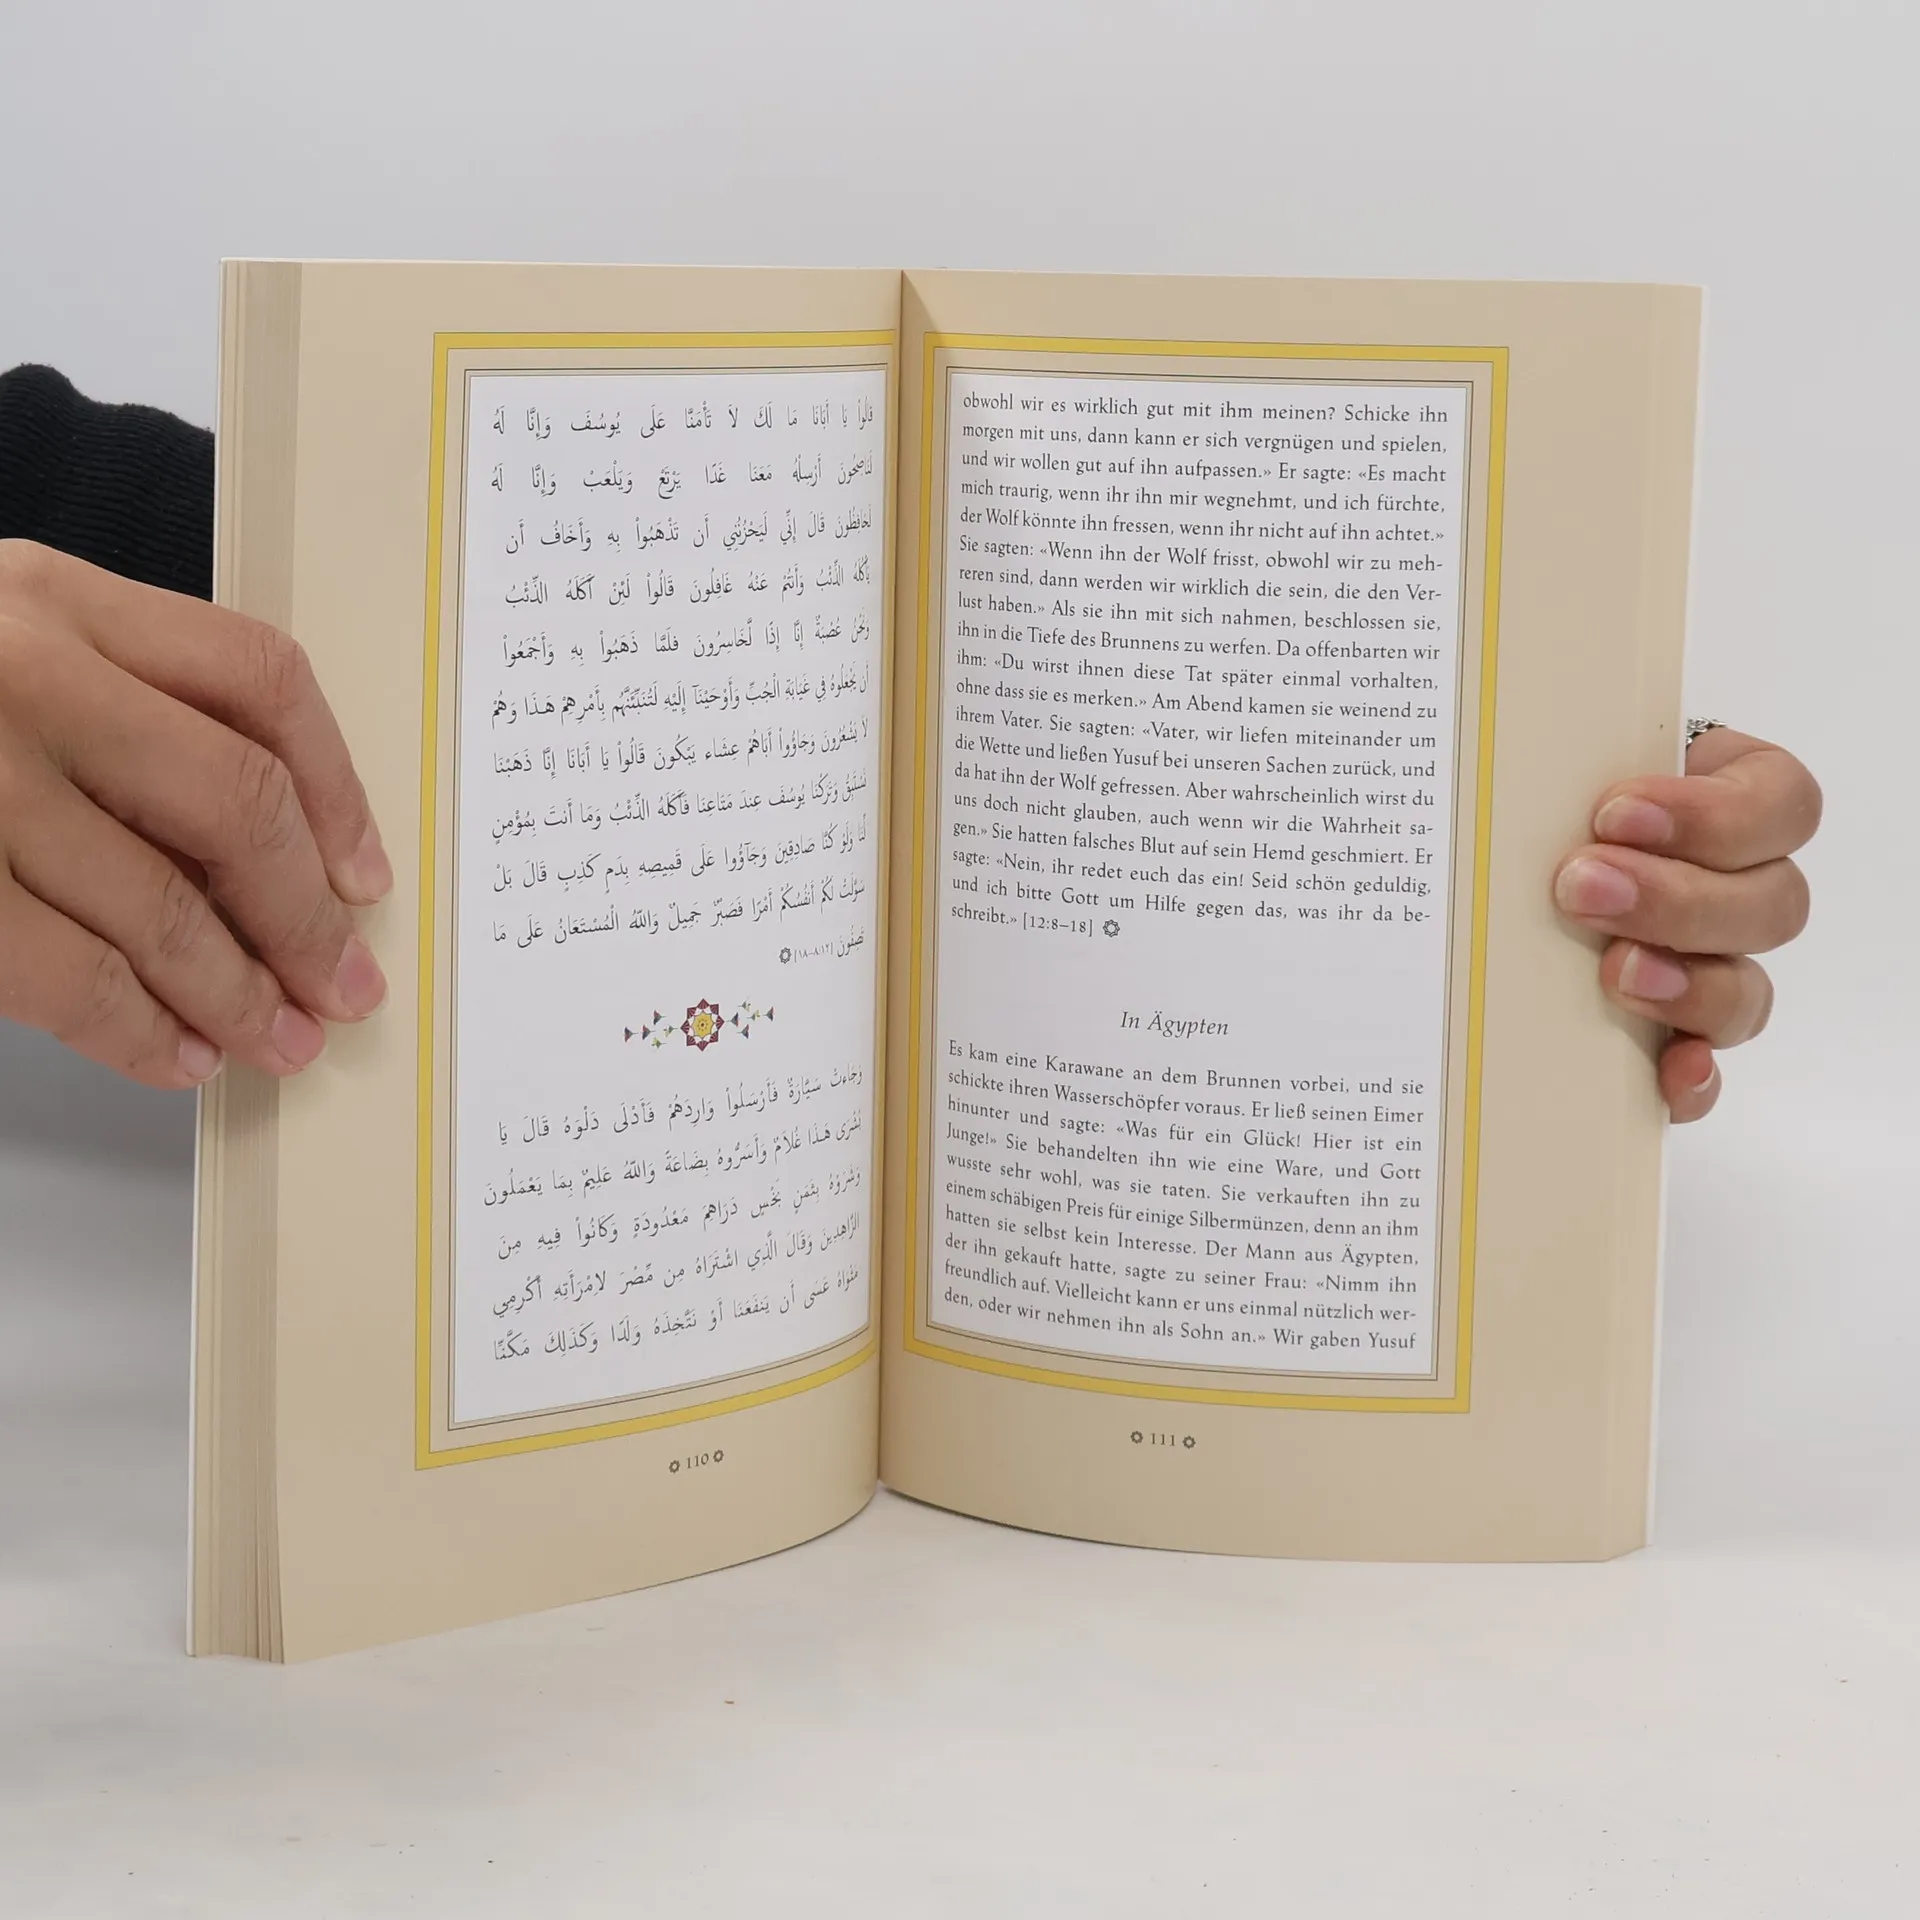 قَالُواْ يَا أَبَانَا مَا لَكَ لاَ تَأْمَنَّا عَلَى يُوسُفَ وَإِنَّا لَهُ
لَنَاصِحُونَ أَرْسِلْهُ مَعَنَا غَدًا يَرْتَعْ وَيَلْعَبْ وَإِنَّا لَهُ
لَحَافِظُونَ قَالَ إِنِّي لَيَحْزُنُنِي أَن تَذْهَبُواْ بِهِ وَأَخَافُ أَن
يَأْكُلَهُ الذِّئْبُ وَأَنتُمْ عَنْهُ غَافِلُونَ قَالُواْ لَئِنْ أَكَلَهُ الذِّئْبُ
وَنَحْنُ عُصْبَةٌ إِنَّا إِذًا لَّخَاسِرُونَ فَلَمَّا ذَهَبُواْ بِهِ وَأَجْمَعُواْ
أَن يَجْعَلُوهُ فِي غَيَابَةِ الْجُبِّ وَأَوْحَيْنَآ إِلَيْهِ لَتُنَبِّئَنَّهُم بِأَمْرِهِمْ هَـذَا وَهُمْ
لاَ يَشْعُرُونَ وَجَاؤُواْ أَبَاهُمْ عِشَاء يَبْكُونَ قَالُواْ يَا أَبَانَا إِنَّا ذَهَبْنَا
نَسْتَبِقُ وَتَرَكْنَا يُوسُفَ عِندَ مَتَاعِنَا فَأَكَلَهُ الذِّئْبُ وَمَا أَنتَ بِمُؤْمِنٍ
لَّنَا وَلَوْ كُنَّا صَادِقِينَ وَجَآؤُوا عَلَى قَمِيصِهِ بِدَمٍ كَذِبٍ قَالَ بَلْ
سَوَّلَتْ لَكُمْ أَنفُسُكُمْ أَمْرًا فَصَبْرٌ جَمِيلٌ وَاللّهُ الْمُسْتَعَانُ عَلَى مَا
تَصِفُونَ [١٢:٨–١٨]
وَجَاءتْ سَيَّارَةٌ فَأَرْسَلُواْ وَارِدَهُمْ فَأَدْلَى دَلْوَهُ قَالَ يَا
بُشْرَى هَـذَا غُلاَمٌ وَأَسَرُّوهُ بِضَاعَةً وَاللّهُ عَلِيمٌ بِمَا يَعْمَلُونَ
وَشَرَوْهُ بِثَمَنٍ بَخْسٍ دَرَاهِمَ مَعْدُودَةٍ وَكَانُواْ فِيهِ مِنَ
الزَّاهِدِينَ وَقَالَ الَّذِي اشْتَرَاهُ مِن مِّصْرَ لاِمْرَأَتِهِ أَكْرِمِي
مَثْوَاهُ عَسَى أَن يَنفَعَنَا أَوْ نَتَّخِذَهُ وَلَدًا وَكَذَلِكَ مَكَّنِّا
110
obwohl wir es wirklich gut mit ihm meinen? Schicke ihn
morgen mit uns, dann kann er sich vergnügen und spielen,
und wir wollen gut auf ihn aufpassen.» Er sagte: «Es macht
mich traurig, wenn ihr ihn mir wegnehmt, und ich fürchte,
der Wolf könnte ihn fressen, wenn ihr nicht auf ihn achtet.»
Sie sagten: «Wenn ihn der Wolf frisst, obwohl wir zu meh-
reren sind, dann werden wir wirklich die sein, die den Ver-
lust haben.» Als sie ihn mit sich nahmen, beschlossen sie,
ihn in die Tiefe des Brunnens zu werfen. Da offenbarten wir
ihm: «Du wirst ihnen diese Tat später einmal vorhalten,
ohne dass sie es merken.» Am Abend kamen sie weinend zu
ihrem Vater. Sie sagten: «Vater, wir liefen miteinander um
die Wette und ließen Yusuf bei unseren Sachen zurück, und
da hat ihn der Wolf gefressen. Aber wahrscheinlich wirst du
uns doch nicht glauben, auch wenn wir die Wahrheit sa-
gen.» Sie hatten falsches Blut auf sein Hemd geschmiert. Er
sagte: «Nein, ihr redet euch das ein! Seid schön geduldig,
und ich bitte Gott um Hilfe gegen das, was ihr da be-
schreibt.» [12:8–18]
In Ägypten
Es kam eine Karawane an dem Brunnen vorbei, und sie
schickte ihren Wasserschöpfer voraus. Er ließ seinen Eimer
hinunter und sagte: «Was für ein Glück! Hier ist ein
Junge!» Sie behandelten ihn wie eine Ware, und Gott
wusste sehr wohl, was sie taten. Sie verkauften ihn zu
einem schäbigen Preis für einige Silbermünzen, denn an ihm
hatten sie selbst kein Interesse. Der Mann aus Ägypten,
der ihn gekauft hatte, sagte zu seiner Frau: «Nimm ihn
freundlich auf. Vielleicht kann er uns einmal nützlich wer-
den, oder wir nehmen ihn als Sohn an.» Wir gaben Yusuf
111